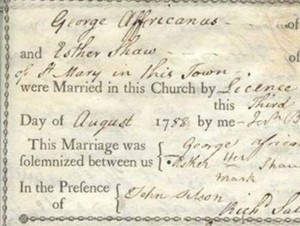 George Affricanus of
and Esther Shaw of
of St Mary in this Town
were Married in this Church by Licence
this Third
Day of August 1788 by me
This Marriage was
solemnized between us
George Africanus
Esther Her Shaw
mark
In the Presence
of
John
Richd